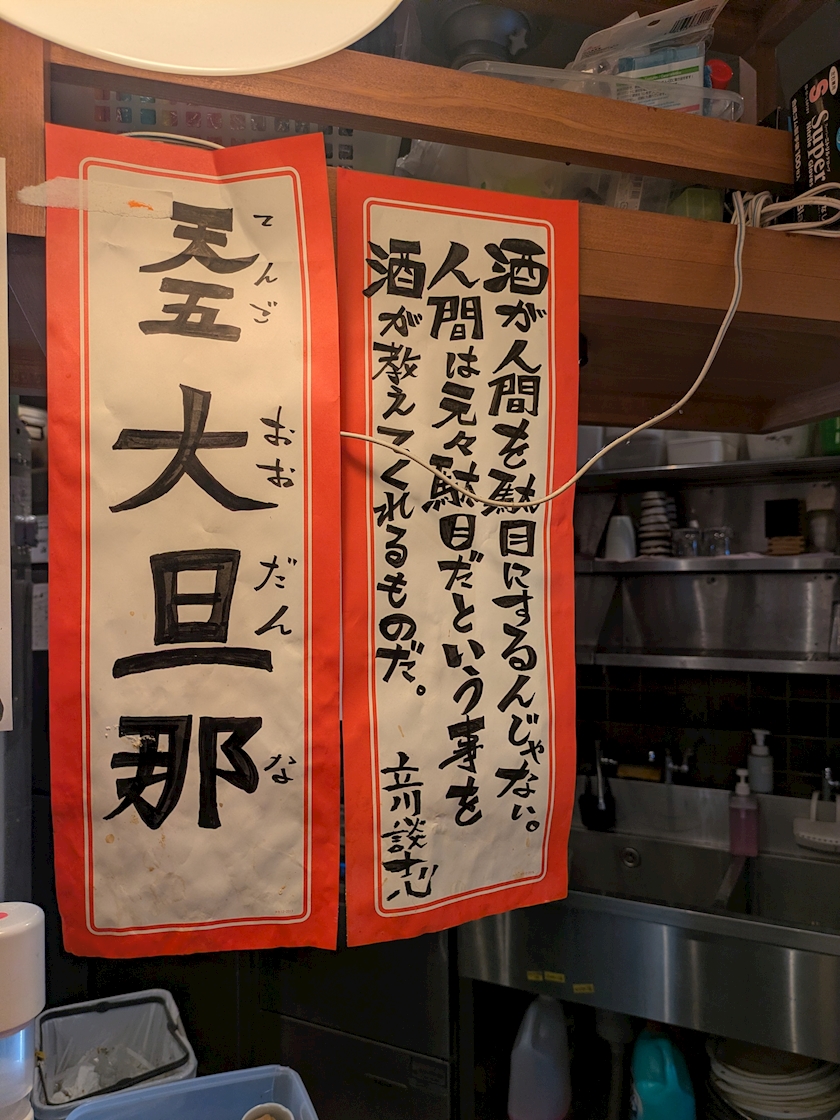 酒が人間を駄目にするんじゃない。
人間は元々駄目だという事を
酒が教えてくれるものだ。
立川談志
天五
てんご
大旦那
おおだんな
Super